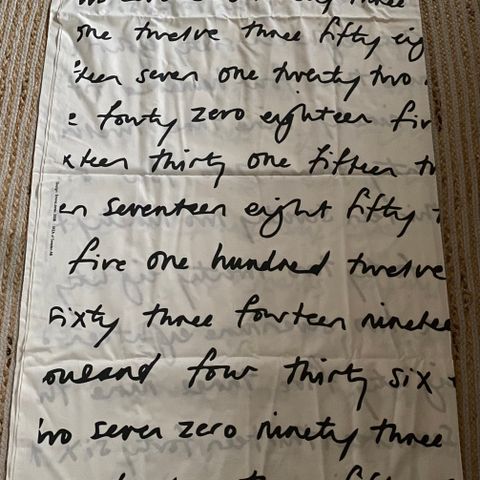 three
one twelve three fifty eig
teen seven one twenty two
e forty zero eighteen fiv
xteen thirty one fifteen tw
en seventeen eight fifty
five one hundred twelve
sixty three fourteen ninetee
ousand four thirty six
wo seven zero ninety three